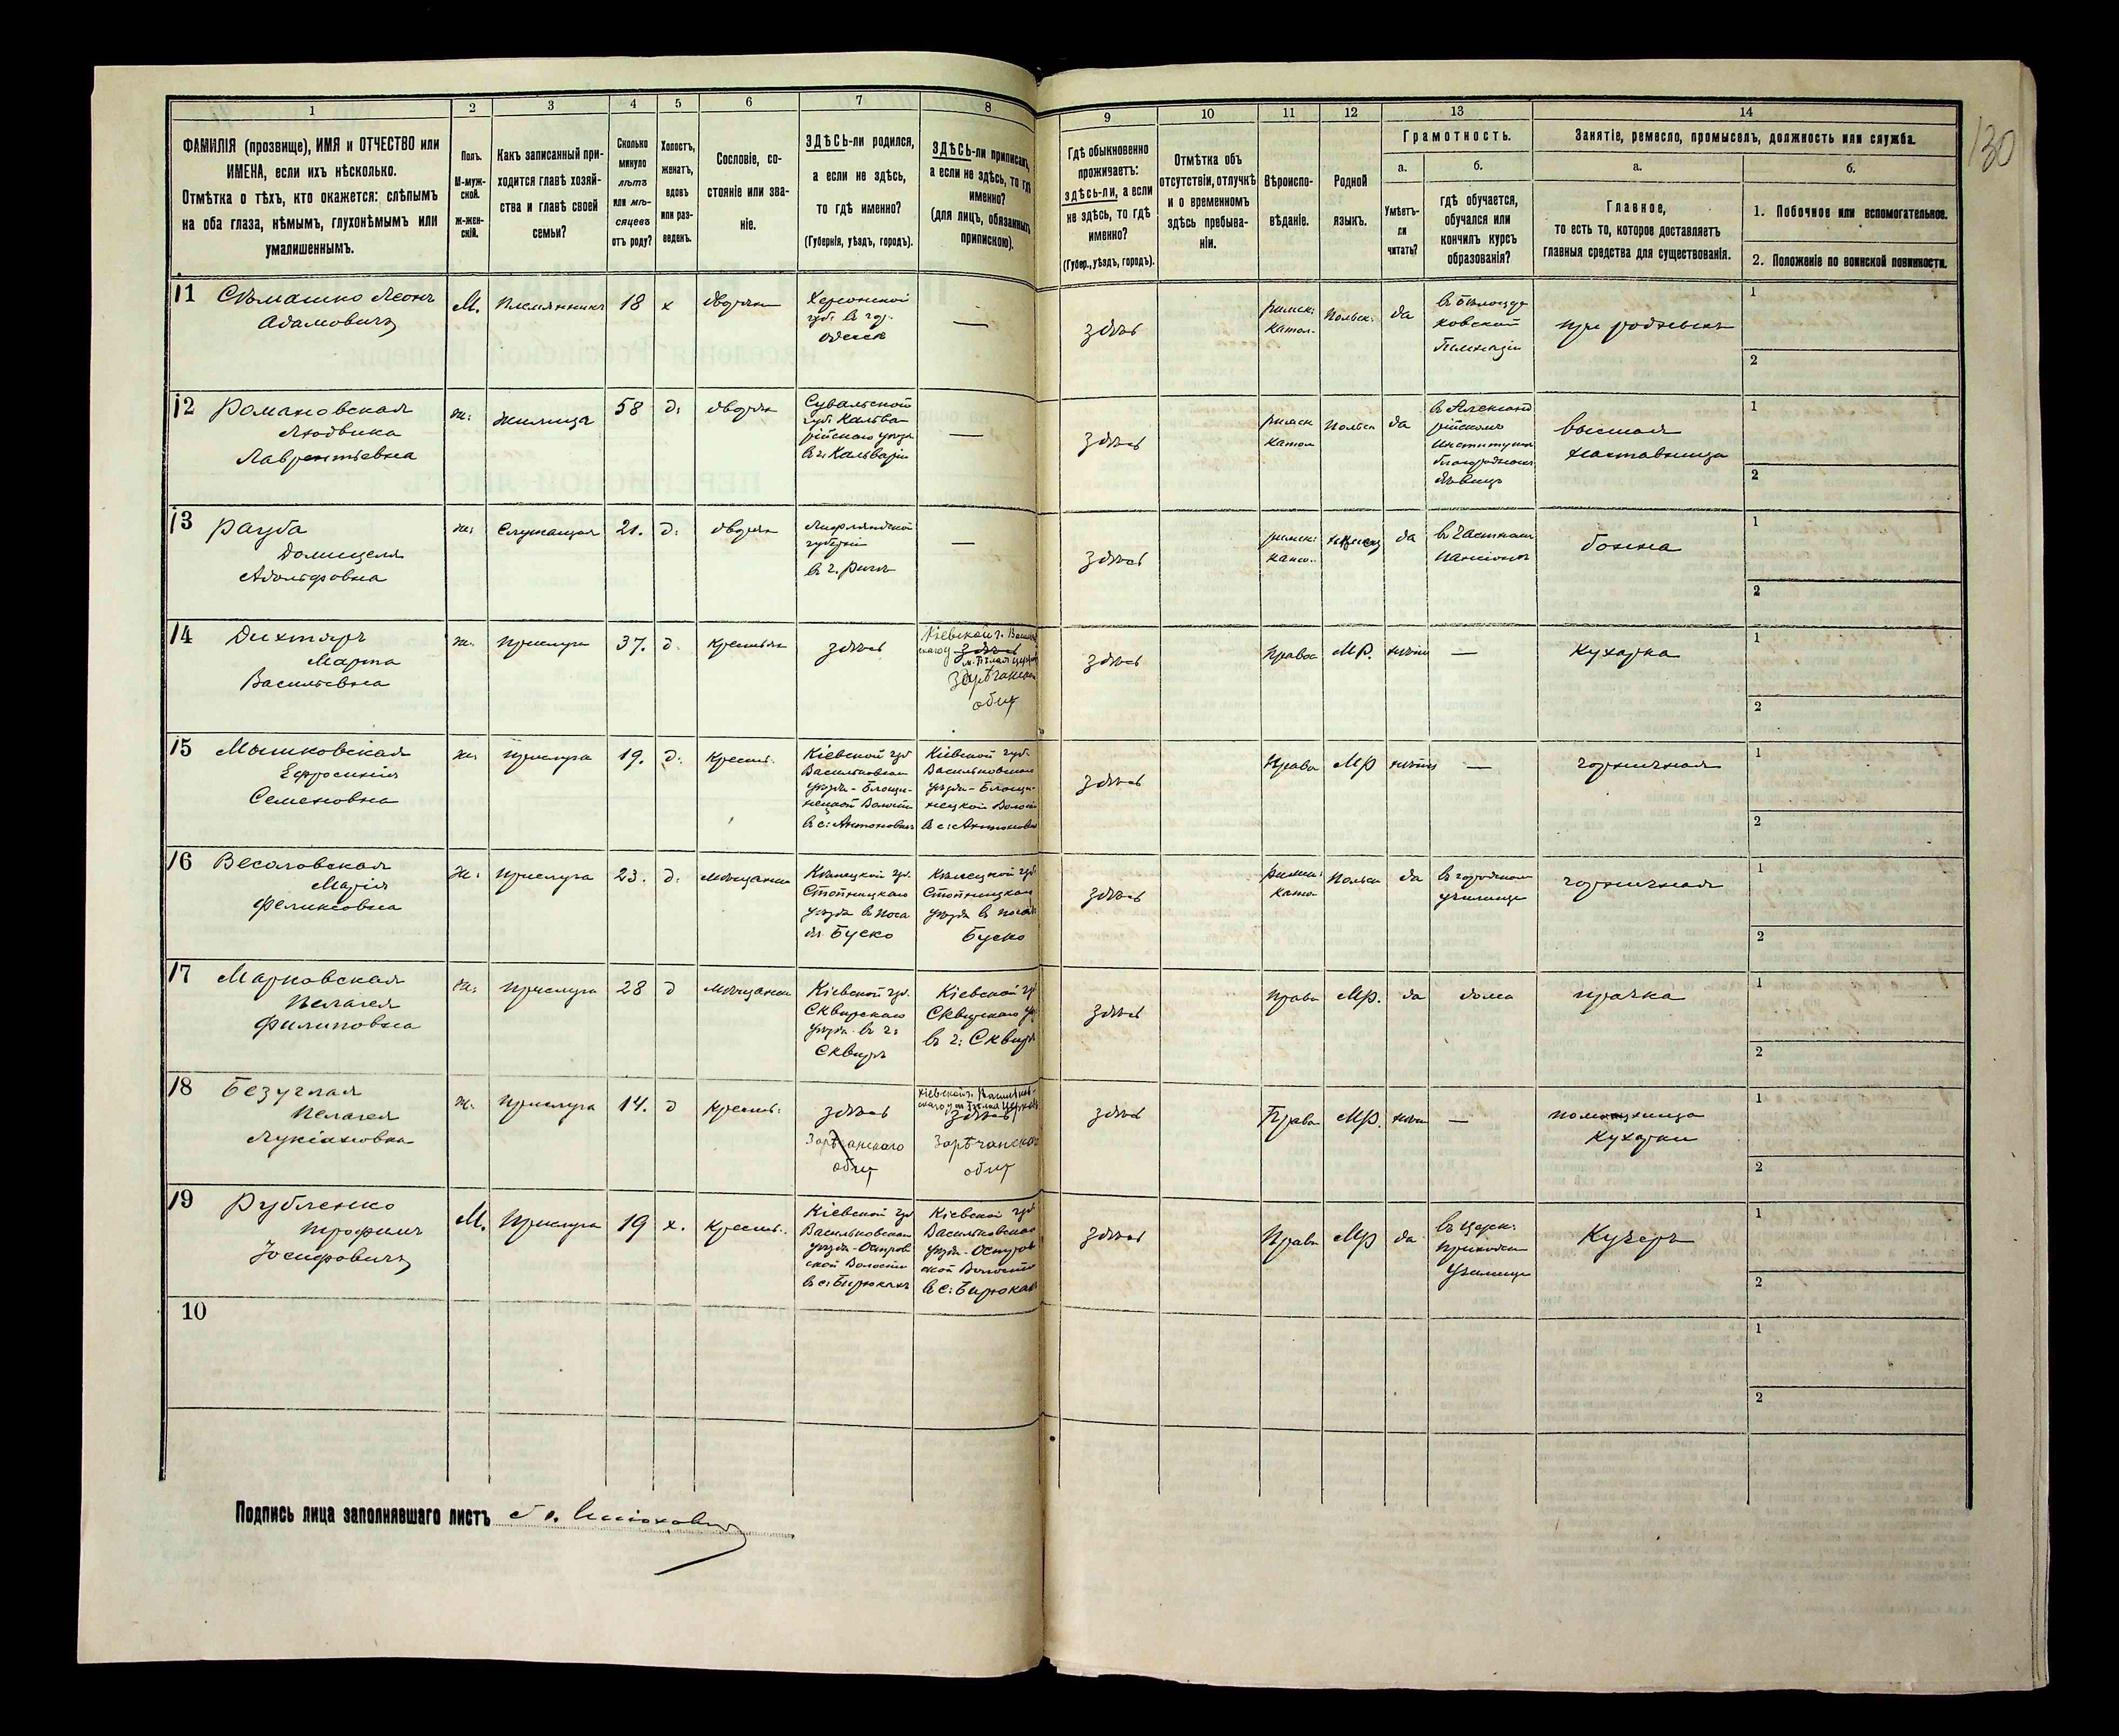 130
1 2 3 4 5 6 7 8 9 10 11 12 13 14
ФАМИЛІЯ (прозвище), ИМЯ и ОТЧЕСТВО или
ИМЕНА, если ихъ нѣсколько.
Отмѣтка о тѣхъ, кто окажется: слѣпымъ
на оба глаза, нѣмымъ, глухонѣмымъ или
умалишеннымъ.
Полъ.
М-муж-
ской.
Ж-жен-
скій.
Какъ записанный при-
ходится главѣ хозяй-
ства и главѣ своей
семьи?
Сколько
минуло
лѣтъ
или мѣ-
сяцевъ
отъ роду?
Холостъ,
женатъ,
вдовъ
или раз-
веденъ.
Сословіе, со-
стояніе или зва-
ніе.
ЗДѢСЬ-ли родился,
а если не здѣсь,
то гдѣ именно?
(Губернія, уѣздъ, городъ).
ЗДѢСЬ-ли приписанъ,
а если не здѣсь, то гдѣ
именно?
(для лицъ, обязанныхъ
припискою).
Гдѣ обыкновенно
проживаетъ:
здѣсь-ли, а если
не здѣсь, то гдѣ
именно?
(Губер., уѣздъ, городъ).
Отмѣтка объ
отсутствіи, отлучкѣ
и о временномъ
здѣсь пребыва-
ніи.
Вѣроиспо-
вѣданіе.
Родной
языкъ.
Грамотность.
а.
Умѣетъ-
ли
читать?
б.
гдѣ обучается,
обучался или
кончилъ курсъ
образованія?
Занятіе, ремесло, промыселъ, должность или служба.
а.
Главное,
то есть то, которое доставляетъ
главныя средства для существованія.
б.
1. Побочное или вспомогательное.
2. Положеніе по воинской повинности.
11 Сѣмашко Леонъ
Адамовичъ
М. Племянникъ 18 х дворян
Херсонской
губ. въ гор.
Одессѣ
— здѣсь
римск:
катол.
Польск: да
въ Бѣлоцер
ковской
Гимназіи
при родныхъ
1
2
12 Романовская
Людвика
Лаврентьевна
ж. жилица 58 д. дворян
Сувальской
губ. Кальва
рійскаго уѣзд
въ г. Кальваріи
— здѣсь
римск
катол
Польск да
въ Александ
рійскомъ
Институтѣ
благородныхъ
дѣвицъ
высшая
наставница
1
2
13 Рауба
Домицеля
Адольфовна
ж. Служащая 21. д. дворян
Лифляндской
губерніи
въ г. Ригѣ
— здѣсь
римск:
като.
да
въ частномъ
пансіонѣ
бонна
1
2
14 Дихтяръ
Марта
Васильевна
ж. прислуга 37. д. крестьян здѣсь
Кіевской г. Васильков
скаго у здѣсь
м. Бѣлая Церковь
Зарѣчанск
общ
здѣсь Правос МР. —
кухарка
1
2
15 Мышковская
Ефросинія
Семеновна
ж прислуга 19. д. крестьян.
Кіевской губ
Васильковскаго
уѣзда - Блощи-
нецкой Волости
въ с: Антоновкѣ
Кіевской губ.
Васильковскаго
уѣзда - Блощи-
нецкой Волост
въ с: Антоновкѣ
здѣсь Права МР —
горничная
1
2
16 Весоловская
Марія
Феликсовна
ж. прислуга 23. д. мѣщанка
Кѣлецкой губ.
Стопницкаго
уѣзда въ поса
дѣ Буско
Кѣлецкой губ
Стопницкаго
уѣзда въ посад
Буско
здѣсь
римск:
като
Польск да
въ городском
училищѣ
горничная
1
2
17 Марковская
Пелагея
Филиповна
ж. прислуга 28 д мѣщанка
Кіевской губ.
Сквирскаго
уѣзда въ г:
Сквирѣ
Кіевской гу
Сквирскаго уѣ
въ г: Сквирѣ
здѣсь Права МР. да дома прачка
1
2
18 Безуглая
Пелагея
Лукіановна
ж. прислуга 14. д крестьян.
здѣсь
Зарѣчанскаго
общ
Кіевской г. Васильков-
скаго у м Бѣлая Церковь
здѣсь
Зарѣчанскаго
общ
здѣсь Права МР. —
помощница
кухарки
1
2
19 Рубленко
Трофимъ
Іосифовичъ
М. прислуга 19 х. крестьян.
Кіевской губ
Васильковскаго
уѣзда - Остров
ской Волости
въ с: Бирюкахъ
Кіевской губ
Васильковскаго
уѣзда - Остров
ской Волости
въ с: Бирюках
здѣсь Права МР да
въ церк:
приходск
училищѣ
кучеръ
1
2
10
1
2
Подпись лица заполнявшаго листъ